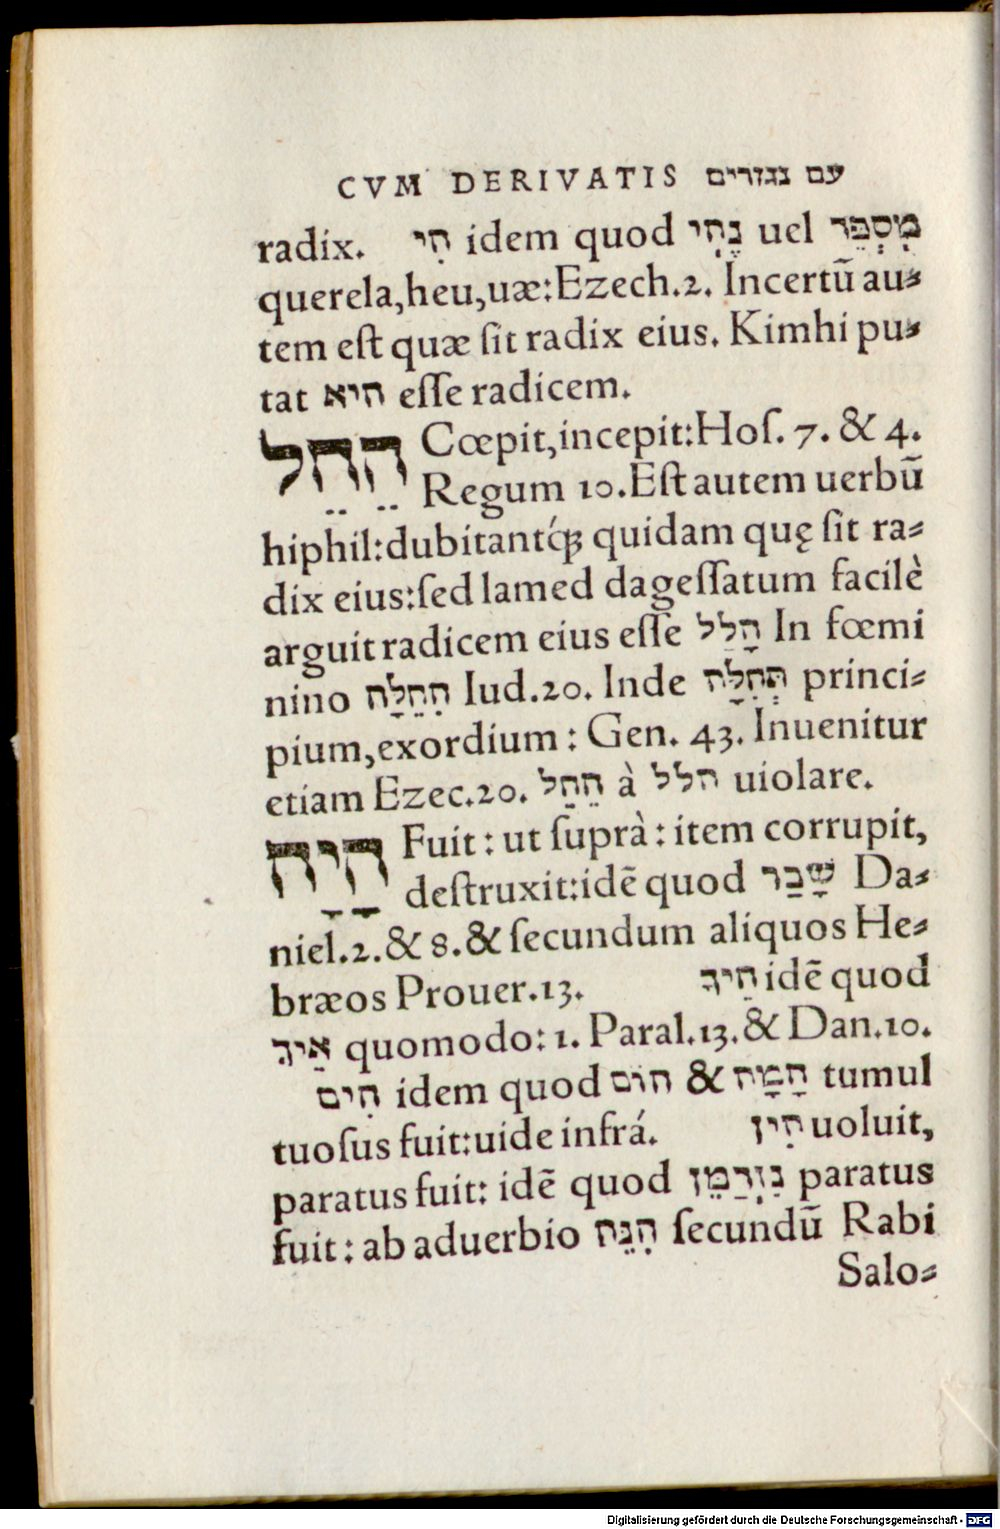 CVM DERIVATIS עם נגזרים
radix. הִי idem quod נֶהִי uel מִסְפֵּד
querela,heu,uæ:Ezech.2. Incertũ au⸗
tem eſt quæ ſit radix eius. Kimhi pu⸗
tat היא eſſe radicem.
הֵחֵל Cœpit,incepit:Hoſ. 7. & 4.
Regum 10.Eſt autem uerbũ
hiphil:dubitantq́ꝫ quidam quę ſit ra⸗
dix eius:ſed lamed dageſſatum facilè
arguit radicem eius eſſe הָלַל In fœmi
nino הֵחֵלָּה Iud.20. Inde תְּחִלָּה princi⸗
pium,exordium : Gen. 43. Inuenitur
etiam Ezec.20. הֵחַל à חלל uiolare.
הָיָה Fuit : ut ſuprà : item corrupit,
deſtruxit:idẽ quod שָׁבַר Da⸗
niel.2.& 8.& ſecundum aliquos He⸗
bræos Prouer.13. הֵיךְ idẽ quod
אֵיךְ quomodo: 1. Paral.13.& Dan.10.
הִים idem quod הום & הָמָה tumul
tuoſus fuit:uide infrá. הִין uoluit,
paratus fuit: idẽ quod נִזְדַּמֵּן paratus
fuit : ab aduerbio הִנֵּה ſecundũ Rabi
Salo⸗
Digitalisierung gefördert durch die Deutsche Forschungsgemeinschaft - DFG